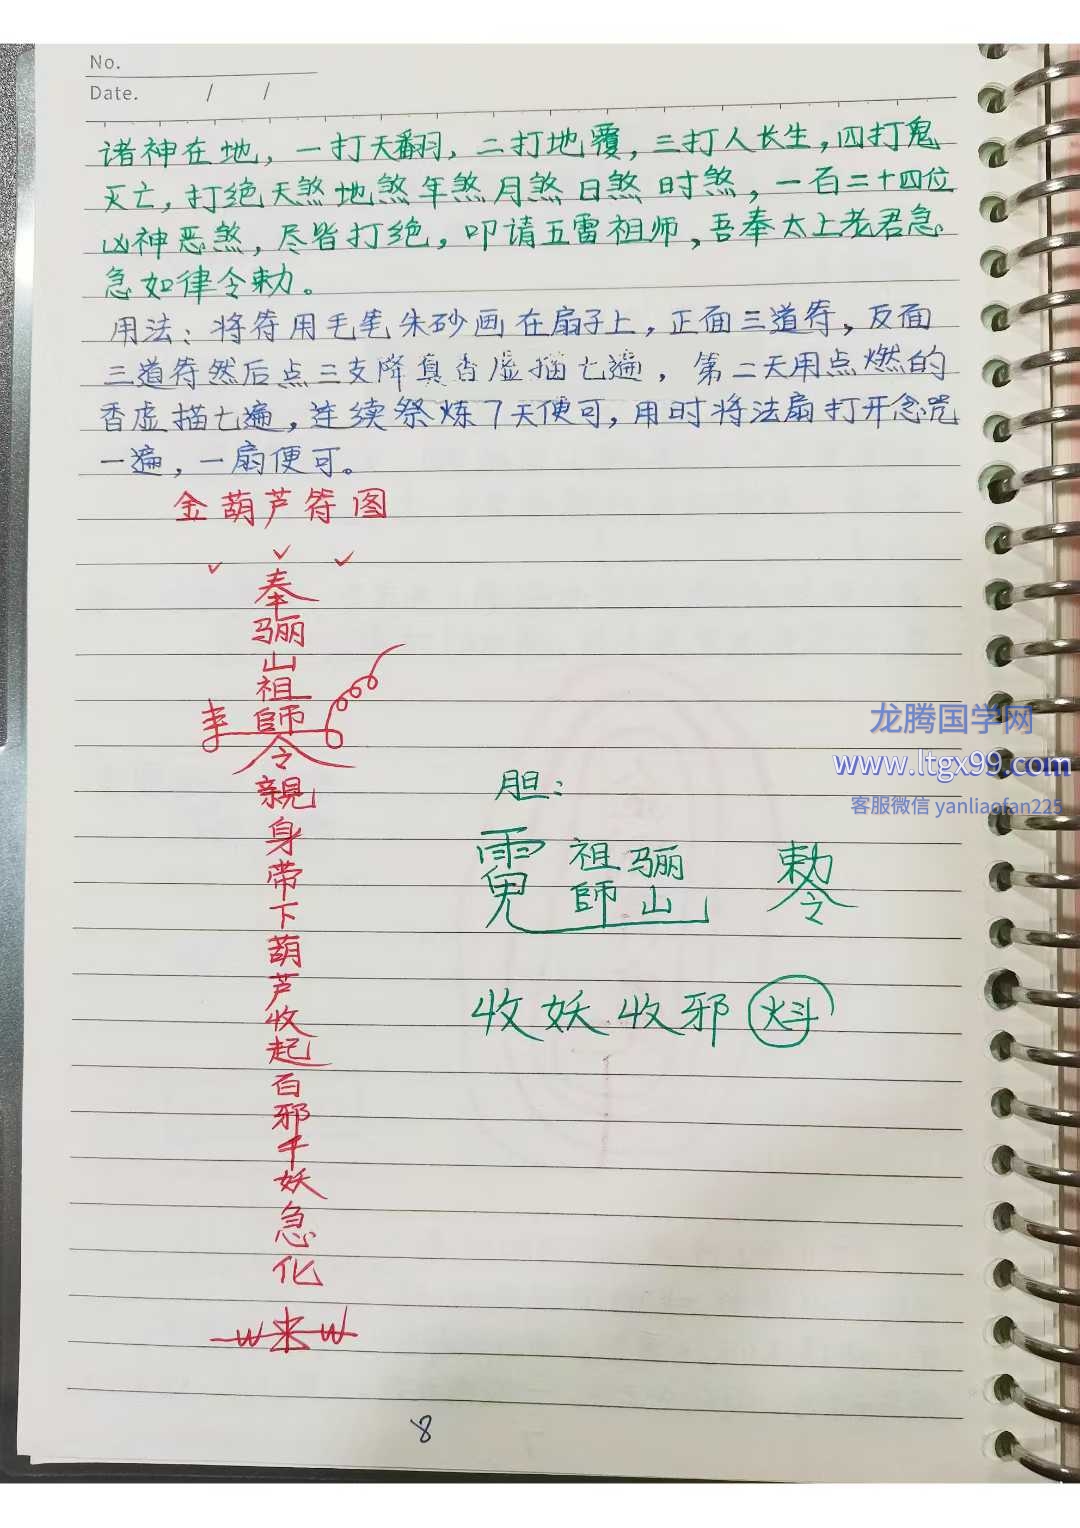 No.
Date. / /
诸神在地，一打天翻，二打地覆，三打人长生，四打鬼
灭亡，打绝天煞地煞年煞月煞日煞时煞，一百二十四位
凶神恶煞，尽皆打绝，叩请五雷祖师，吾奉太上老君急
急如律令勅。
用法：将符用毛笔朱砂画在扇子上，正面三道符，反面
三道符然后点三支降真香虚描七遍，第二天用点燃的
香虚描七遍，连续祭炼7天便可，用时将法扇打开念咒
一遍，一扇便可。
金葫芦符图
奉
骊
山
祖
師
令
親
身
带
下
葫
芦
收
起
百
邪
千
妖
急
化
胆：
祖師
骊山
勅令
收妖收邪
龙腾国学网
www.ltgx99.com
客服微信 yanliaofan225
8